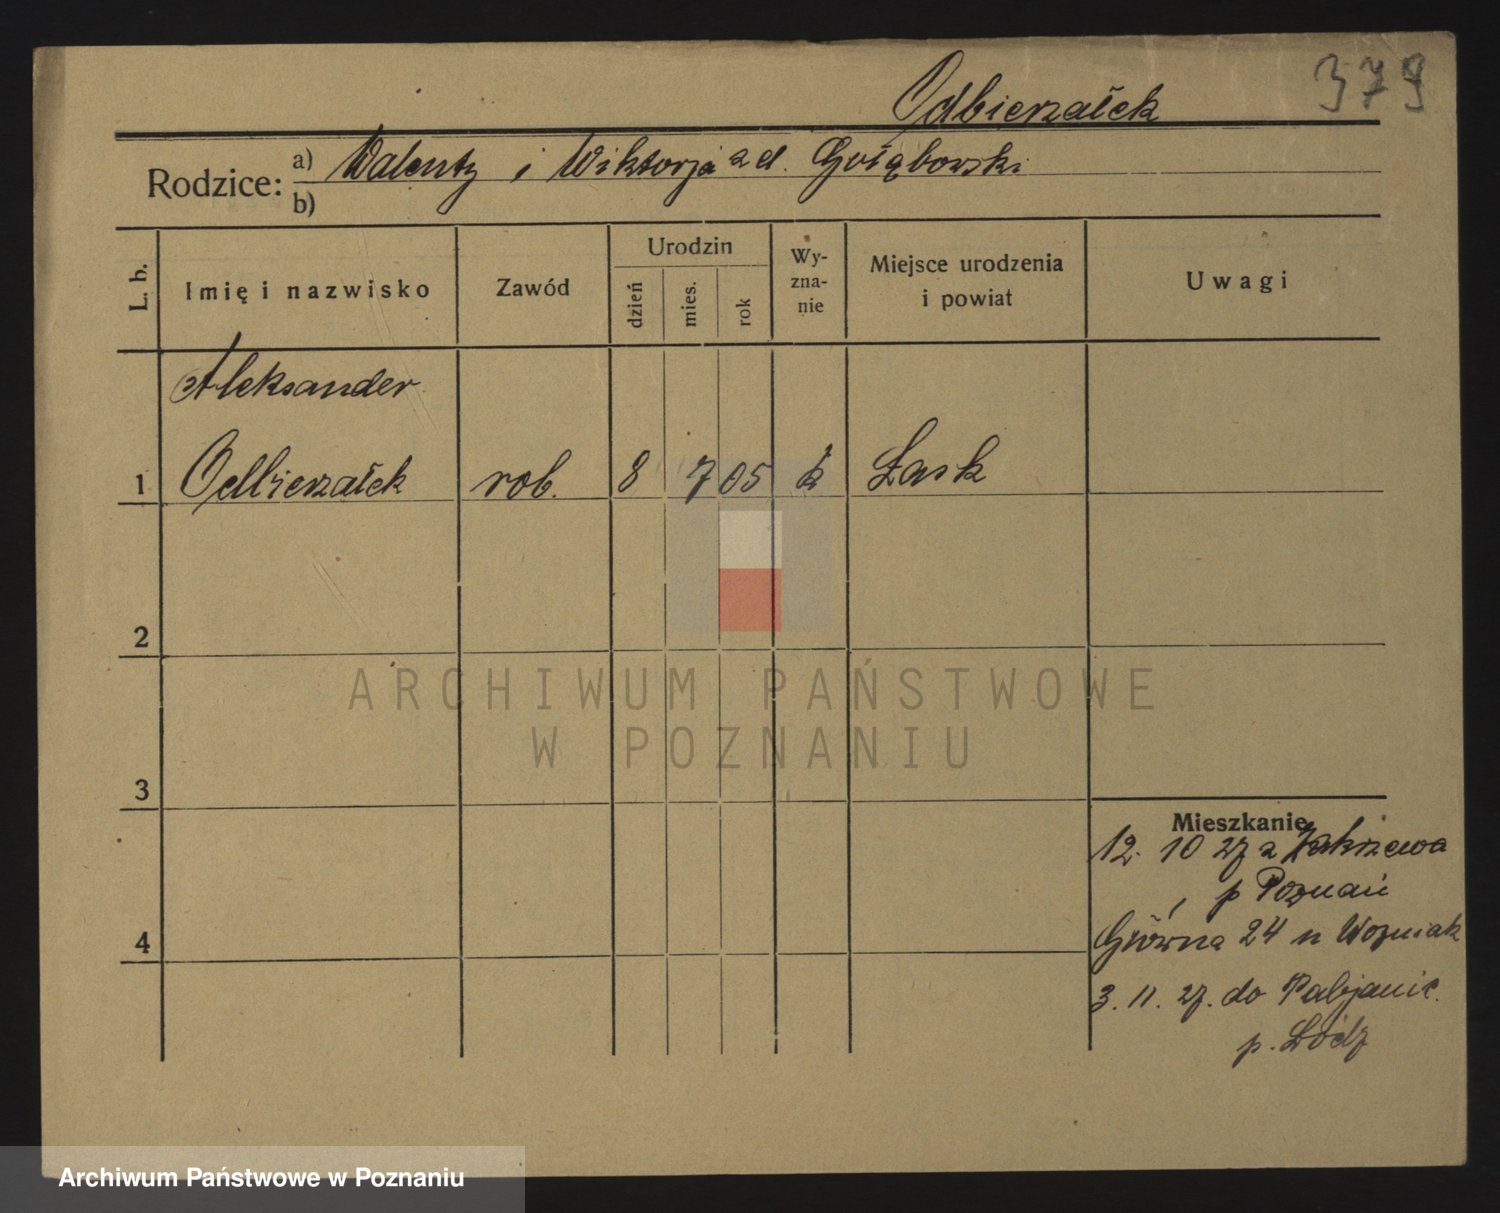 379
Odbierzałek
Rodzice: a) Walenty i Wiktorja z d. Gołąbowski
b)
L. b.
Imię i nazwisko
Zawód
Urodzin
dzień
mies.
rok
Wy-
zna-
nie
Miejsce urodzenia
i powiat
Uwagi
Aleksander
1 Odbierzałek rob. 8 7 05 k Łask
2
ARCHIWUM PAŃSTWOWE
W POZNANIU
3
Mieszkanie
12. 10 27 z Zakrzewa
p Poznań
4
Główna 24 u Wozniak
3. 11. 27. do Pabjanic.
p. Łódź
Archiwum Państwowe w Poznaniu